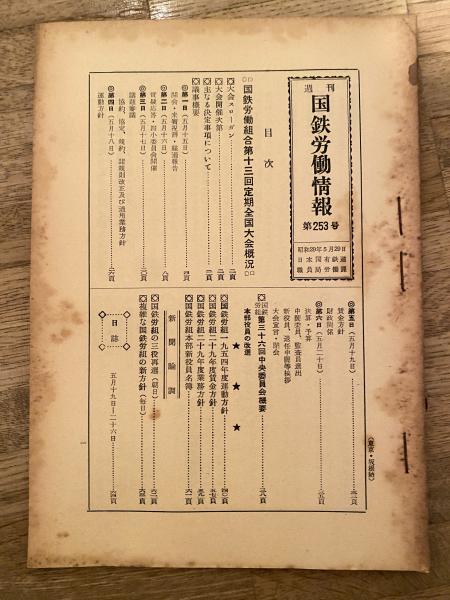 週刊
国鉄労働情報
第253号
昭和29年5月29日
日本国有鉄道
職員局労働課
目次
国鉄労働組合第十三回定期全国大会概況
◎大会スローガン……二頁
◎大会開催次第……二頁
◎主なる決定事項について……三頁
◎議事概要
◎第一日（五月十五日）……四頁
開会・来賓祝辞・経過報告
◎第二日（五月十六日）……八頁
質疑応答・四小委員会開催
◎第三日（五月十七日）……二〇頁
議題審議
◎第四日（五月十八日）……二六頁
協約、協定、規約、諸規則改正及び適用業務方針
運動方針
◎第五日（五月十九日）……三二頁
賃金方針
財政関係
◎第六日（五月二十日）……三五頁
決算・予算
中闘委員、監査員選出
新役員、退任中闘等挨拶
大会宣言・閉会
国鉄労組 第三十六回中央委員会概要……三八頁
本部役員の改選
★ ★ ★
◎国鉄労組一九五四年度運動方針……四〇頁
◎国鉄労組二十九年度賃金方針……五七頁
◎国鉄労組二十九年度業務方針……五九頁
◎国鉄労組本部新役員名簿……六二頁
新聞論調
◎国鉄労組の三役再選（朝日）……六三頁
◎複雑な国鉄労組の新方針（毎日）……六三頁
日誌
五月十九日―二十六日……六四頁
（東京・呉服橋）
一